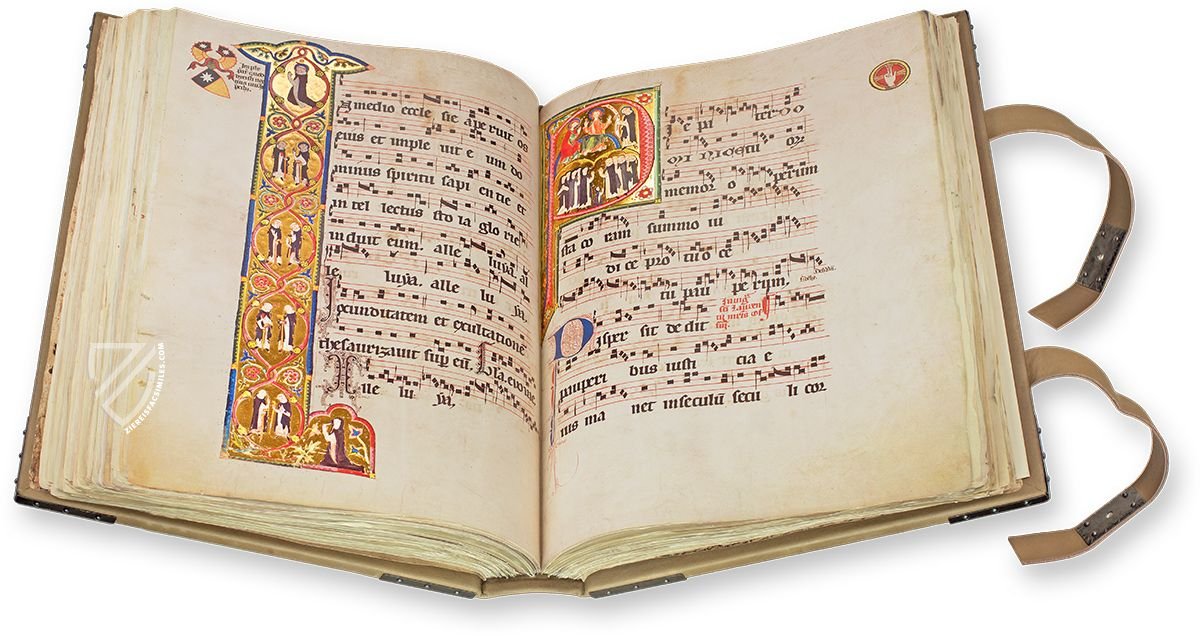 n medio eccle sie aperuit os
eius et imple uit e um do
minus spiritu sapi en tie et
in tel lectus sto la glo rie
induit eum. alle luya. al
le luya. alle lu ya.
Iocunditatem et exultatione
thesaurizauit sup eū.
Alle lu ya.
memor o perum
sta co ram summo iu
di ce pro
tu pau pe rum.
Disper sit de dit
pauperi bus iusti cia e
ius ma net in seculū secu li cor
ZIEREISFACSIMILES.COM